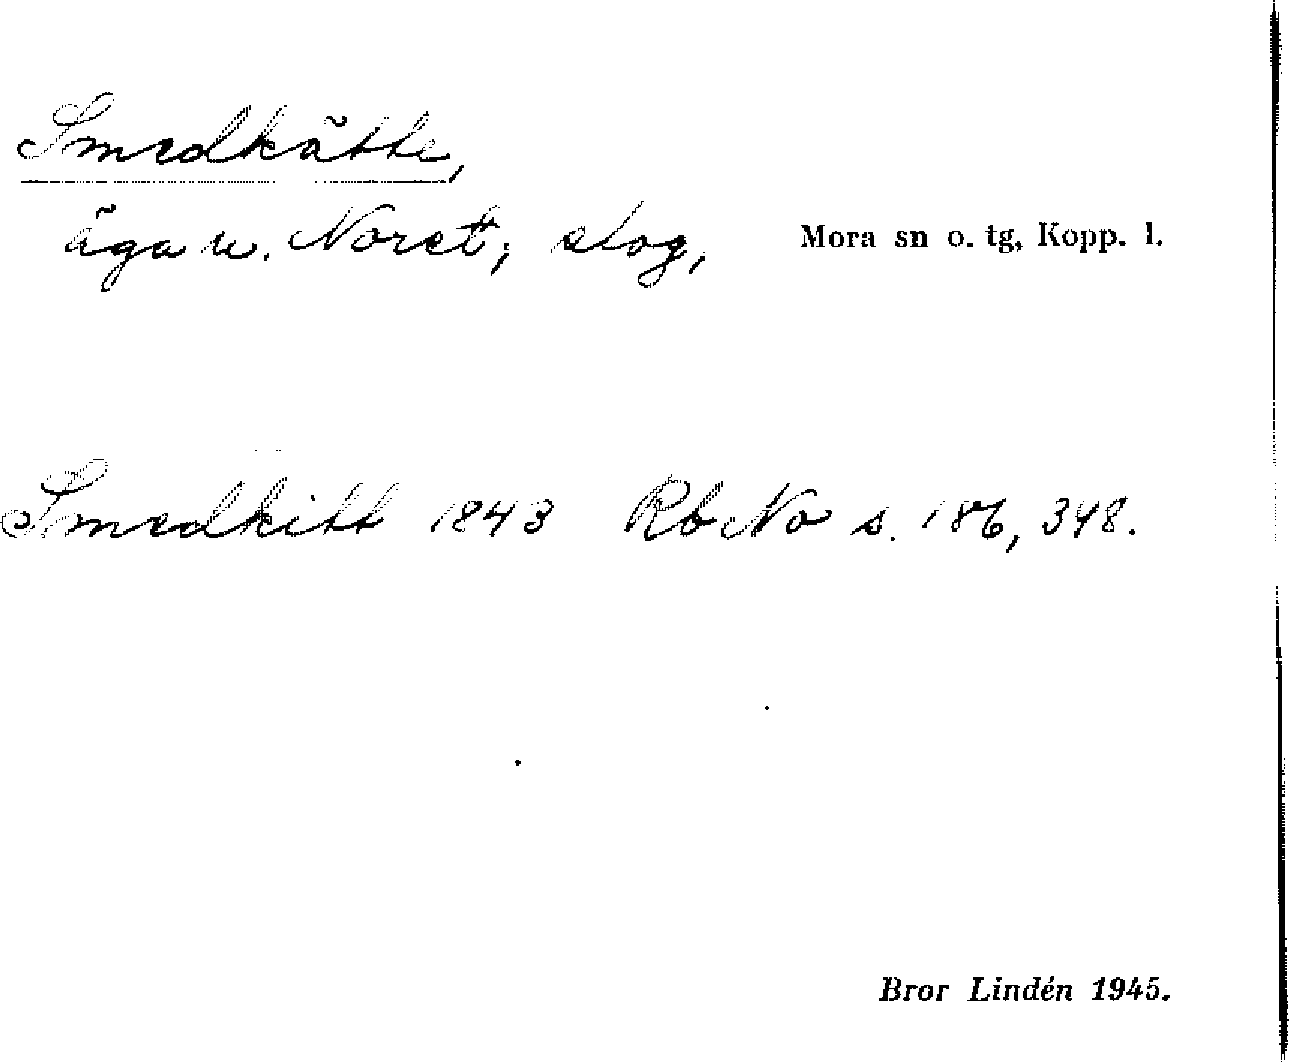 Smedkätte,
äga u. Noret, slog, Mora sn o. tg, Kopp. l.
Smedkitt 1843 Rb No s. 186, 348.
Bror Lindén 1945.